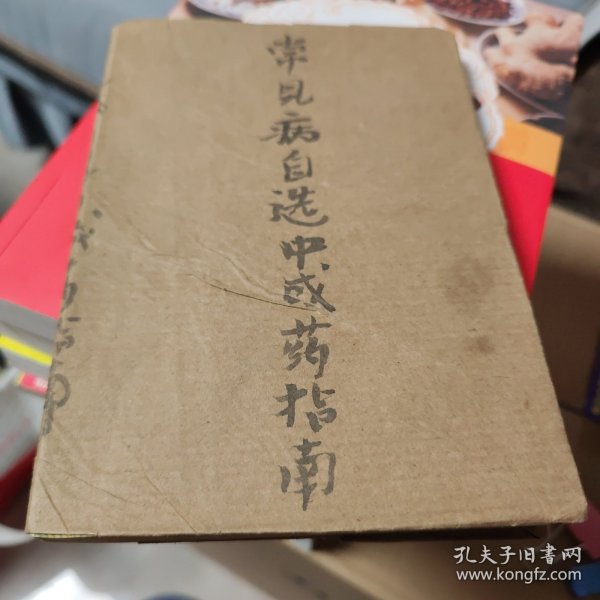 常见病自选中成药指南
成药指南
孔夫子旧书网
www.kongfz.com